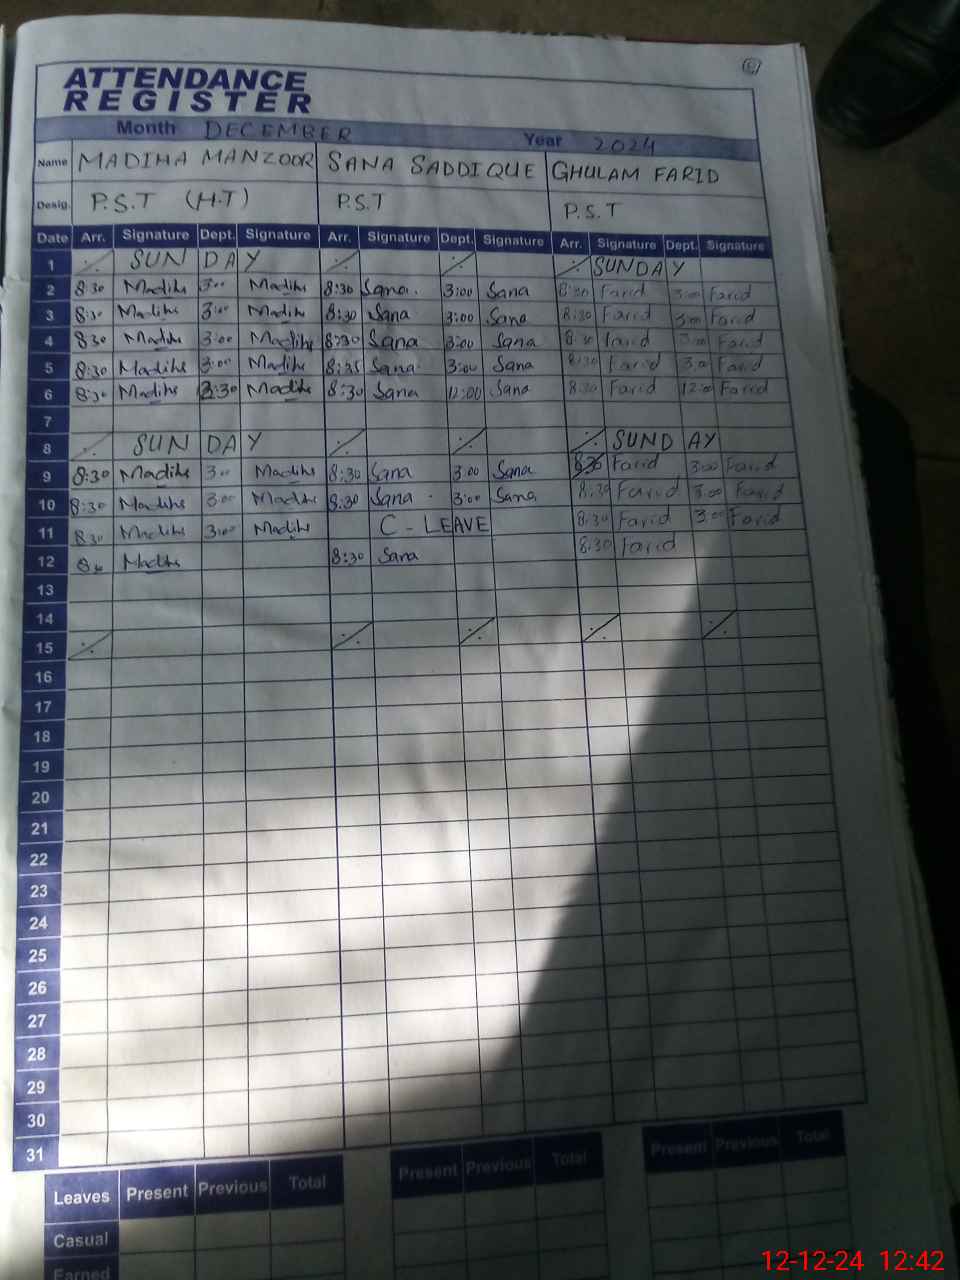 6
ATTENDANCE
REGISTER
Month DECEMBER Year 2024
Name MADIHA MANZOOR SANA SADDIQUE GHULAM FARID
Desig. P.S.T (H.T) P.S.T P.S.T
Date Arr. Signature Dept. Signature Arr. Signature Dept. Signature Arr. Signature Dept. Signature
1 SUN DAY SUNDAY
2 8:30 Madiha 3:00 Madiha 8:30 Sana 3:00 Sana 8:30 Farid 3:00 Farid
3 8:30 Madiha 3:00 Madiha 8:30 Sana 3:00 Sana 8:30 Farid 3:00 Farid
4 830 Madiha 3:00 Madiha 8:30 Sana 3:00 Sana 8:30 Farid 3:00 Farid
5 8:30 Madiha 3:00 Madiha 8:35 Sana 3:00 Sana 8:30 Farid 3:00 Farid
6 8:30 Madiha Madiha 8:30 Sana 12:00 Sana 8:30 Farid 12:00 Farid
7
8 SUN DAY SUND AY
9 8:30 Madiha 3:00 Madiha 8:30 Sana 3:00 Sana 8:30 Farid 3:00 Farid
10 8:30 Madiha 3:00 Madiha 8:30 Sana 3:00 Sana 8:30 Farid 3:00 Farid
11 830 Madiha 3:00 Madiha C - LEAVE 8:30 Farid 3:00 Farid
12 Madiha 8:30 Sana 8:30 Farid
13
14
15
16
17
18
19
20
21
22
23
24
25
26
27
28
29
30
31
Leaves Present Previous Total Present Previous Total Present Previous Total
Casual
Earned
12-12-24 12:42